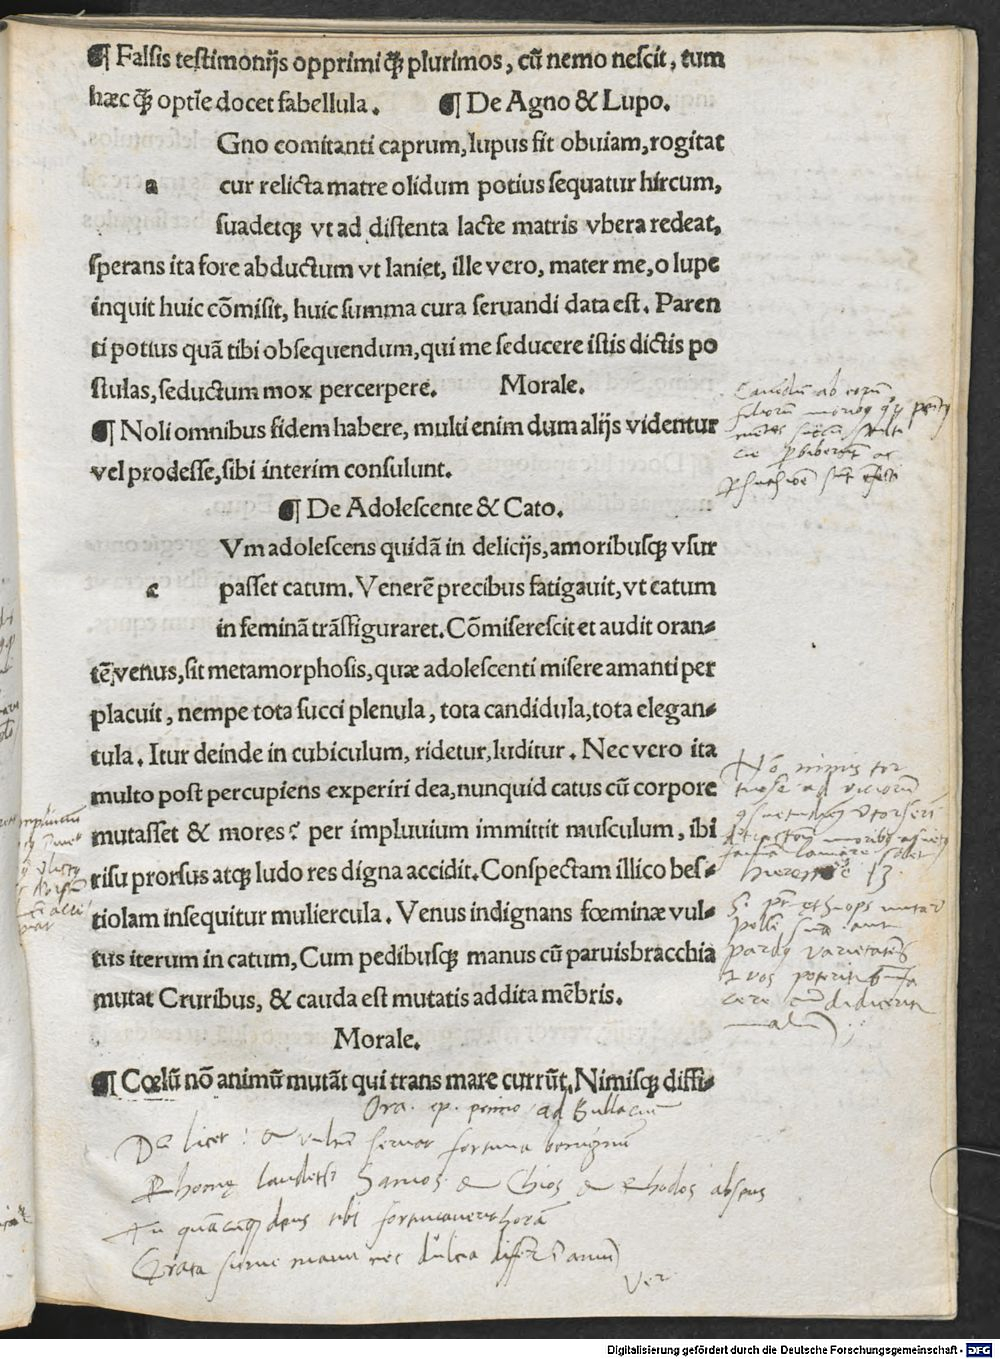 ¶ Falsis testimonijs opprimi q̃ȝ plurimos, cũ nemo nescit, tum
hæc q̃ȝ optĩe docet fabellula. ¶ De Agno & Lupo.
Gno comitanti caprum, lupus fit obuiam, rogitat
a cur relicta matre olidum potius sequatur hircum,
suadetqȝ vt ad distenta lacte matris vbera redeat,
sperans ita fore abductum vt laniet, ille vero, mater me, o lupe
inquit huic cõmisit, huic summa cura seruandi data est. Paren
ti potius quã tibi obsequendum, qui me seducere istis dictis po
stulas, seductum mox percerpere. Morale.
¶ Noli omnibus fidem habere, multi enim dum alijs videntur
vel prodesse, sibi interim consulunt.
¶ De Adolescente & Cato.
Vm adolescens quidã in delicijs, amoribusqȝ vsur
c passet catum. Venerẽ precibus fatigauit, vt catum
in feminã trãsfiguraret. Cõmiserescit et audit oran-
tẽ venus, fit metamorphosis, quæ adolescenti misere amanti per
placuit, nempe tota succi plenula, tota candidula, tota elegan-
tula. Itur deinde in cubiculum, ridetur, luditur. Nec vero ita
multo post percupiens experiri dea, nunquid catus cũ corpore
mutasset & mores? per impluuium immittit musculum, ibi
risu prorsus atqȝ ludo res digna accidit. Conspectam illico bes-
tiolam insequitur muliercula. Venus indignans fœminæ vul-
tus iterum in catum, Cum pedibusqȝ manus cũ paruisbracchia
mutat Cruribus, & cauda est mutatis addita mẽbris.
Morale.
¶ Cœlũ nõ animũ mutãt qui trans mare currũt. Nimisqȝ diffi-
ep. primo ad Bullacium
licet & vultũ seruat fortuna benignũ
Rhomę laudetur Samos & Chios & Rhodos absens
Tu quãcunqȝ deus tibi fortunauerit horã
Grata sume manu nec dulcia differ ĩ annũ
Digitalisierung gefördert durch die Deutsche Forschungsgemeinschaft - DFG